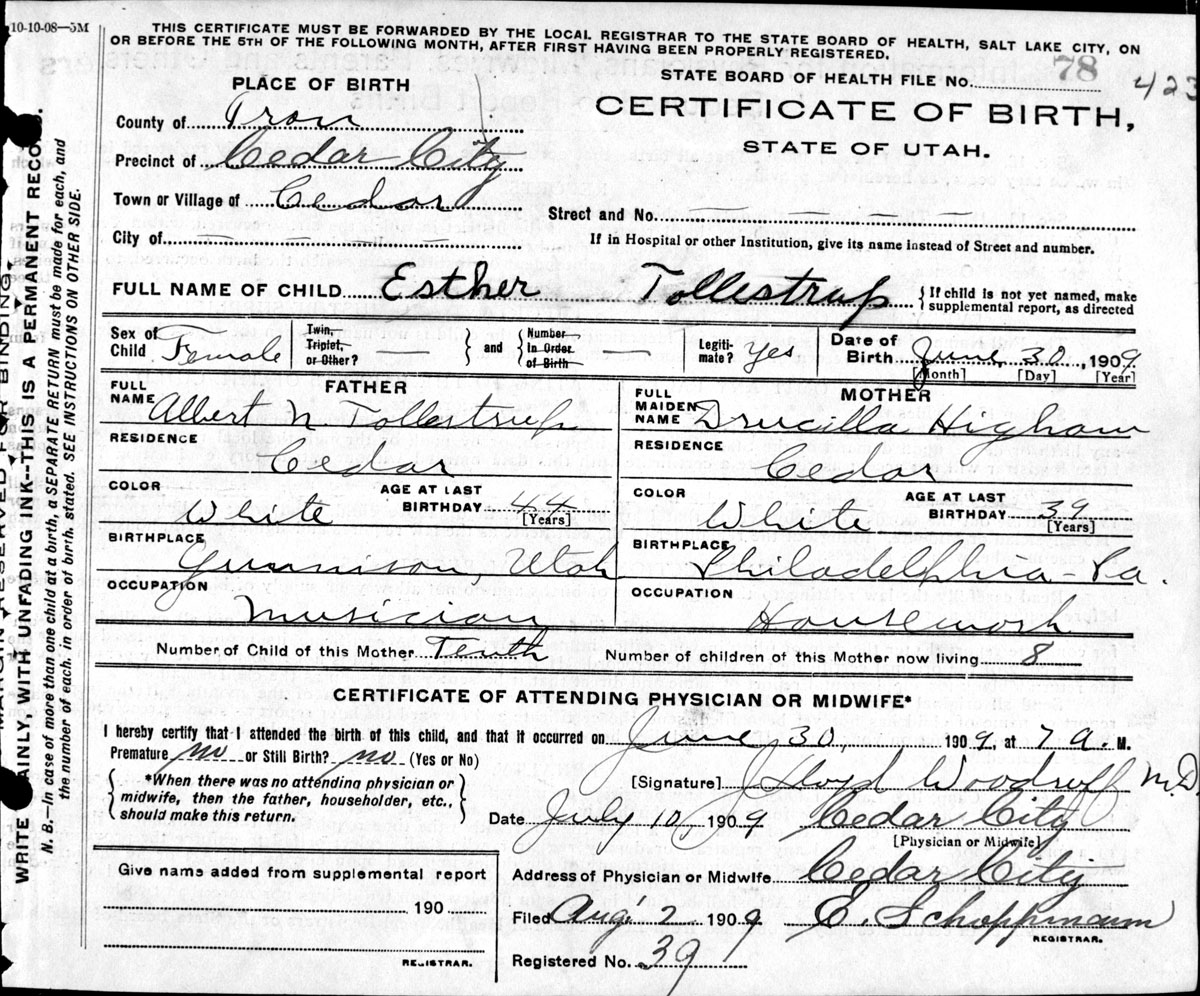 10-10-08—5M
THIS CERTIFICATE MUST BE FORWARDED BY THE LOCAL REGISTRAR TO THE STATE BOARD OF HEALTH, SALT LAKE CITY, ON
OR BEFORE THE 5TH OF THE FOLLOWING MONTH, AFTER FIRST HAVING BEEN PROPERLY REGISTERED.
STATE BOARD OF HEALTH FILE No. 78 423
PLACE OF BIRTH
CERTIFICATE OF BIRTH,
STATE OF UTAH.
County of Iron
Precinct of Cedar City
Town or Village of Cedar
Street and No. — — — — —
City of — — — — —
If in Hospital or other Institution, give its name instead of Street and number.
FULL NAME OF CHILD Esther Tollestrup { If child is not yet named, make
supplemental report, as directed
Sex of Child Female
Twin, Triplet, or Other? — } and { Number In Order of Birth —
Legiti-mate? Yes
Date of Birth June 30, 1909
[Month] [Day] [Year]
FATHER
FULL NAME Albert N Tollestrup
RESIDENCE Cedar
COLOR White
AGE AT LAST BIRTHDAY 44 [Years]
BIRTHPLACE Gunnison, Utah
OCCUPATION Musician
MOTHER
FULL MAIDEN NAME Drucilla Higham
RESIDENCE Cedar
COLOR White
AGE AT LAST BIRTHDAY 39 [Years]
BIRTHPLACE Philadelphia - Pa.
OCCUPATION Housework
Number of Child of this Mother Tenth Number of children of this Mother now living 8
CERTIFICATE OF ATTENDING PHYSICIAN OR MIDWIFE*
I hereby certify that I attended the birth of this child, and that it occurred on June 30, 1909, at 7 A. M.
Premature no or Still Birth? no (Yes or No)
{ *When there was no attending physician or
midwife, then the father, householder, etc.,
should make this return. }
[Signature] Lloyd Woodruff M.D.
Date July 10, 1909 Cedar City
[Physician or Midwife]
Give name added from supplemental report
190
REGISTRAR.
Address of Physician or Midwife Cedar City
Filed Aug 2 1909 E. Schoppmann
REGISTRAR.
Registered No. 39
MARGIN RESERVED FOR BINDING
AINLY, WITH UNFADING INK--THIS IS A PERMANENT RECO
WRITE
N. B.—In case of more than one child at a birth, a SEPARATE RETURN must be made for each, and
the number of each, in order of birth, stated. SEE INSTRUCTIONS ON OTHER SIDE.